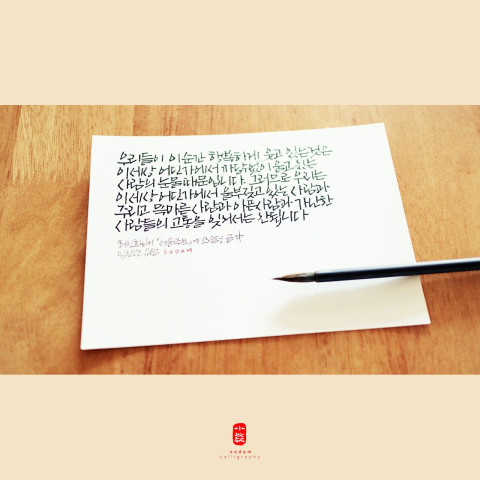 우리들이 이 순간 행복하게 웃고 있는것은
이 세상 어딘가에서 까닭없이 울고 있는
사람의 눈물 때문입니다. 그러므로 우리는
이 세상 어딘가에서 울부짖고 있는 사람과
주리고 목마른 사람과 아픈사람과 가난한
사람들의 고통을 잊어서는 안됩니다
최인호님이 「서울주보」에 쓰셨던 글 中
SODAM
小
sodam
calligraphy